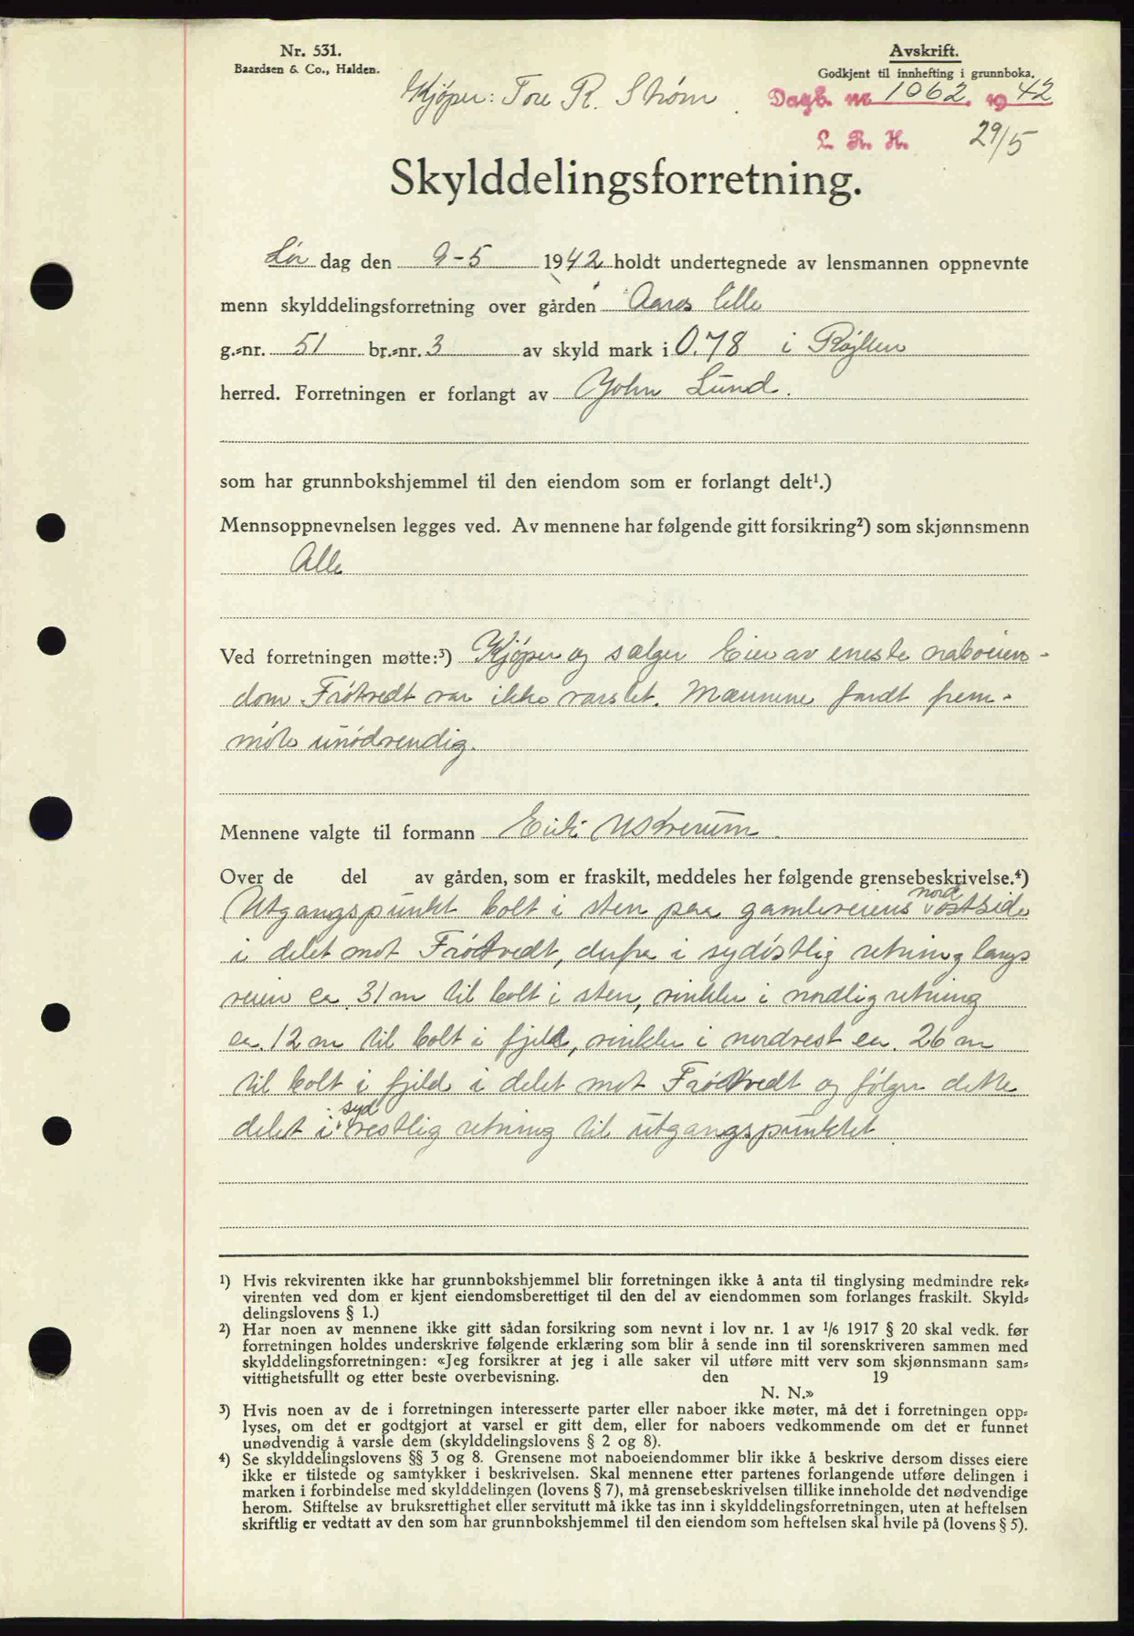 Nr. 531.
Baardsen & Co., Halden.
Avskrift.
Godkjent til innhefting i grunnboka.
Kjøper: Tore R. Strøm
Dagb. nr. 1062 1942
L. R. H. 29/5
Skylddelingsforretning.
Lør dag den 9-5 1942 holdt undertegnede av lensmannen oppnevnte
menn skylddelingsforretning over gården Aaros lille
g.-nr. 51 br.-nr. 3 av skyld mark i 0.78 i Røyken
herred. Forretningen er forlangt av John Lund.
som har grunnbokshjemmel til den eiendom som er forlangt delt¹.)
Mennsoppnevnelsen legges ved. Av mennene har følgende gitt forsikring²) som skjønnsmenn
Alle
Ved forretningen møtte:³) Kjøper og sælger Eier av eneste naboeien-
dom Frøtvedt var ikke varslet. Mænnene fandt frem-
møte unødvendig.
Mennene valgte til formann Erik
Over de del av gården, som er fraskilt, meddeles her følgende grensebeskrivelse.⁴)
nord
Utgangspunkt bolt i sten paa gamleveiens østside
i delet mot Frøtvedt, derfra i sydøstlig retning langs
veien ca 31 m til bolt i sten, vinkler i nordlig retning
ca. 12 m til bolt i fjeld, vinkler i nordvest ca. 26 m
til bolt i fjeld i delet mot Frøtvedt og følger dette
syd
delet i vestlig retning til utgangspunktet
¹) Hvis rekvirenten ikke har grunnbokshjemmel blir forretningen ikke å anta til tinglysing medmindre rek-
virenten ved dom er kjent eiendomsberettiget til den del av eiendommen som forlanges fraskilt. Skyld-
delingslovens § 1.)
²) Har noen av mennene ikke gitt sådan forsikring som nevnt i lov nr. 1 av 1/6 1917 § 20 skal vedk. før
forretningen holdes underskrive følgende erklæring som blir å sende inn til sorenskriveren sammen med
skylddelingsforretningen: «Jeg forsikrer at jeg i alle saker vil utføre mitt verv som skjønnsmann sam-
vittighetsfullt og etter beste overbevisning. den 19
N. N.»
³) Hvis noen av de i forretningen interesserte parter eller naboer ikke møter, må det i forretningen opp-
lyses, om det er godtgjort at varsel er gitt dem, eller for naboers vedkommende om det er funnet
unødvendig å varsle dem (skylddelingslovens § 2 og 8).
⁴) Se skylddelingslovens §§ 3 og 8. Grensene mot naboeiendommer blir ikke å beskrive dersom disses eiere
ikke er tilstede og samtykker i beskrivelsen. Skal mennene etter partenes forlangende utføre delingen i
marken i forbindelse med skylddelingen (lovens § 7), må grensebeskrivelsen tillike inneholde det nødvendige
herom. Stiftelse av bruksrettighet eller servitutt må ikke tas inn i skylddelingsforretningen, uten at heftelsen
skriftlig er vedtatt av den som har grunnbokshjemmel til den eiendom som heftelsen skal hvile på (lovens § 5).